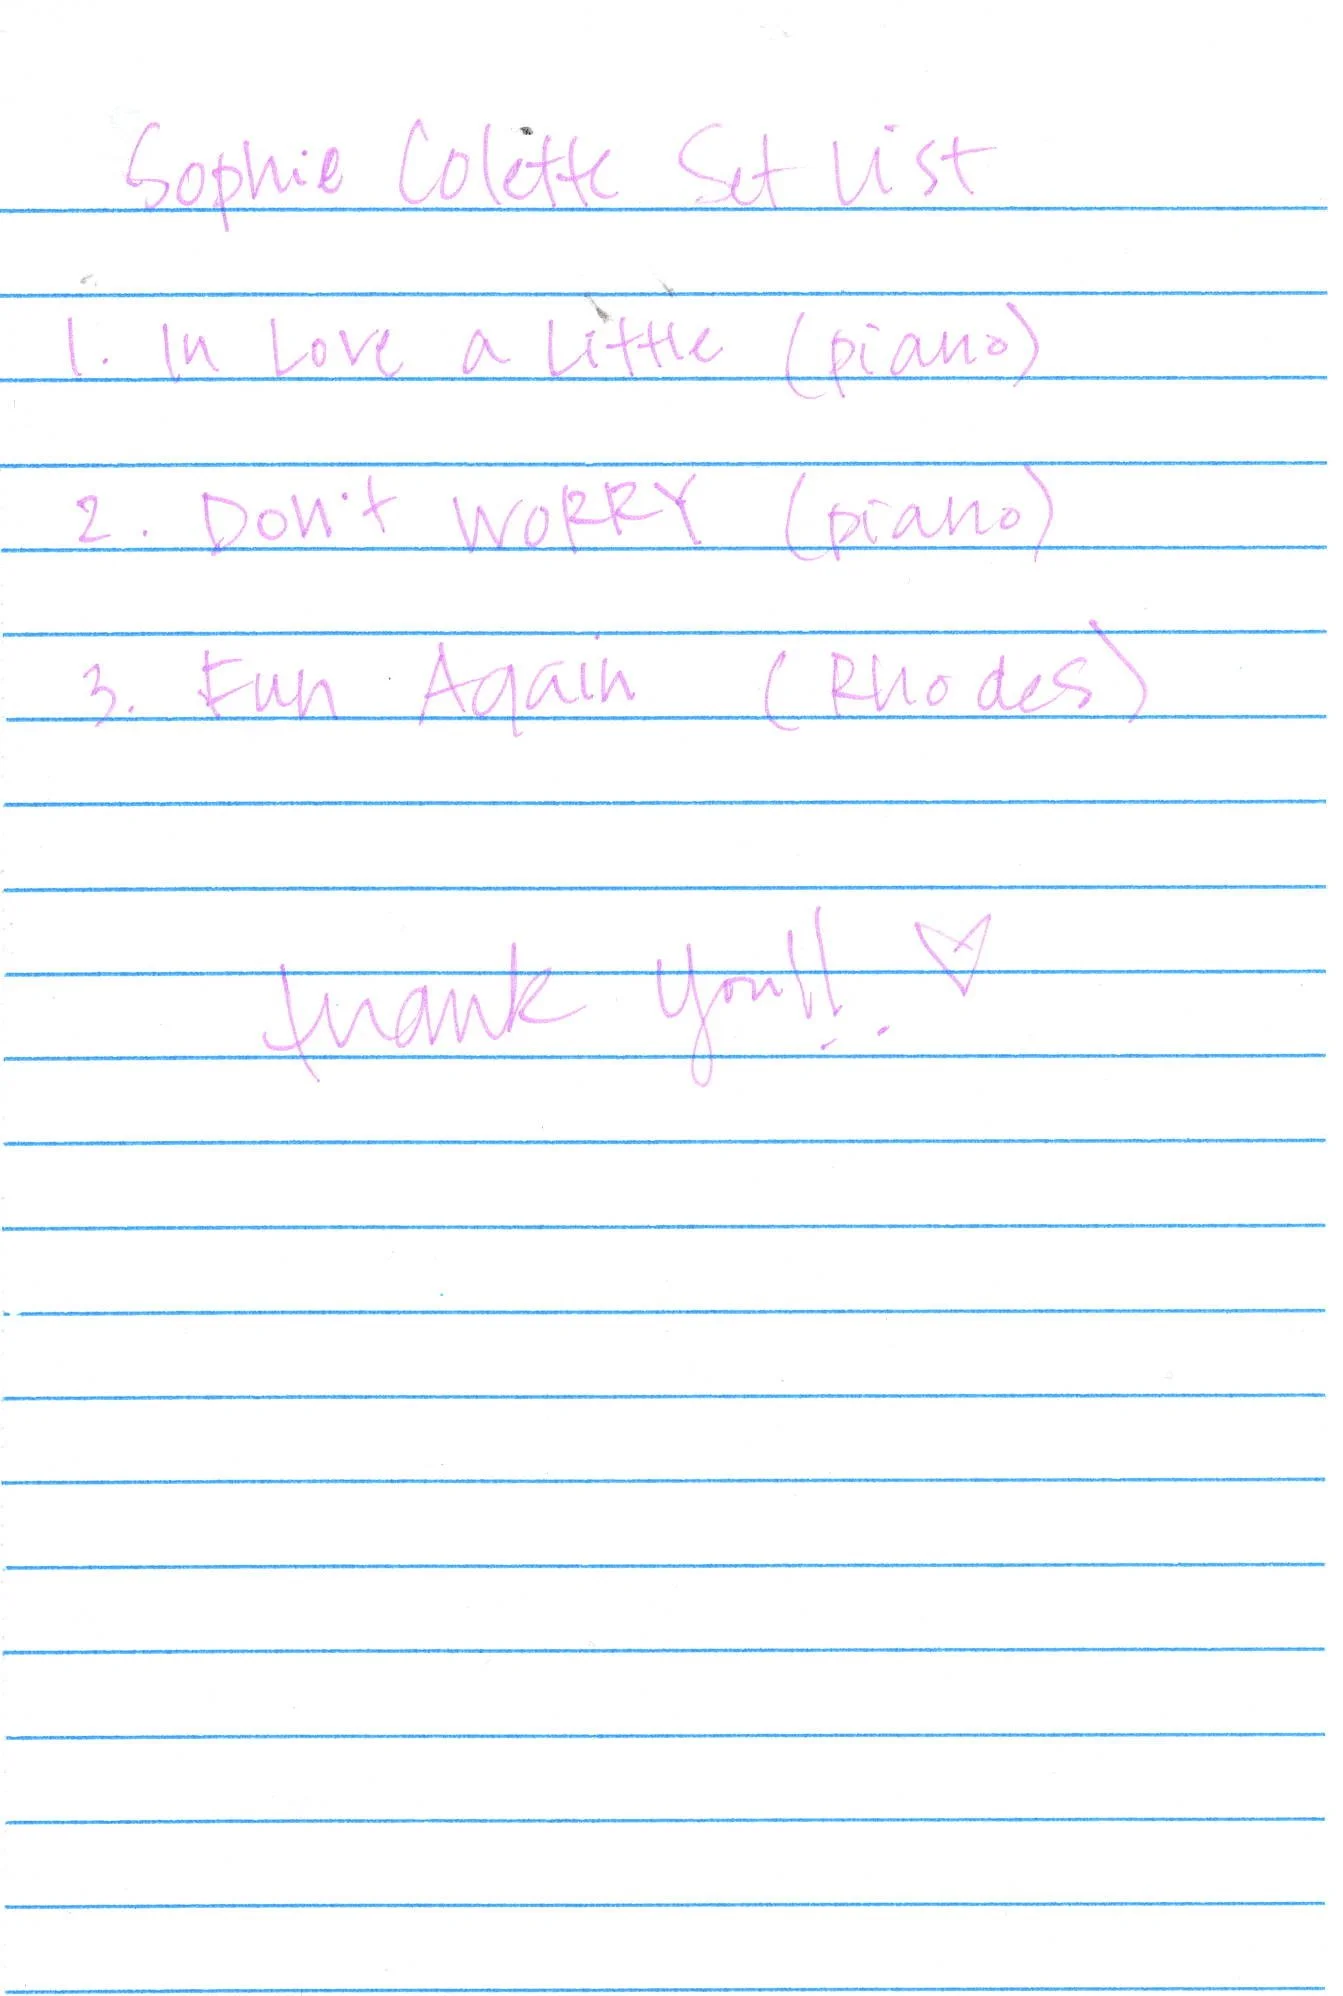 Sophie Colette Set List
1. In Love a Little (piano)
2. Don't WORRY (piano)
3. Fun Again (Rhodes)
thank you!! ♡